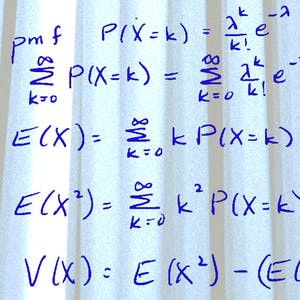 pmf P(X=k) = λ^k/k! e^-λ
∞∑k=0 P(X=k) = ∞∑k=0 λ^k/k! e^-
E(X) = ∞∑k=0 k P(X=k)
E(X²) = ∞∑k=0 k² P(X=k
V(X) = E(X²) - (E(